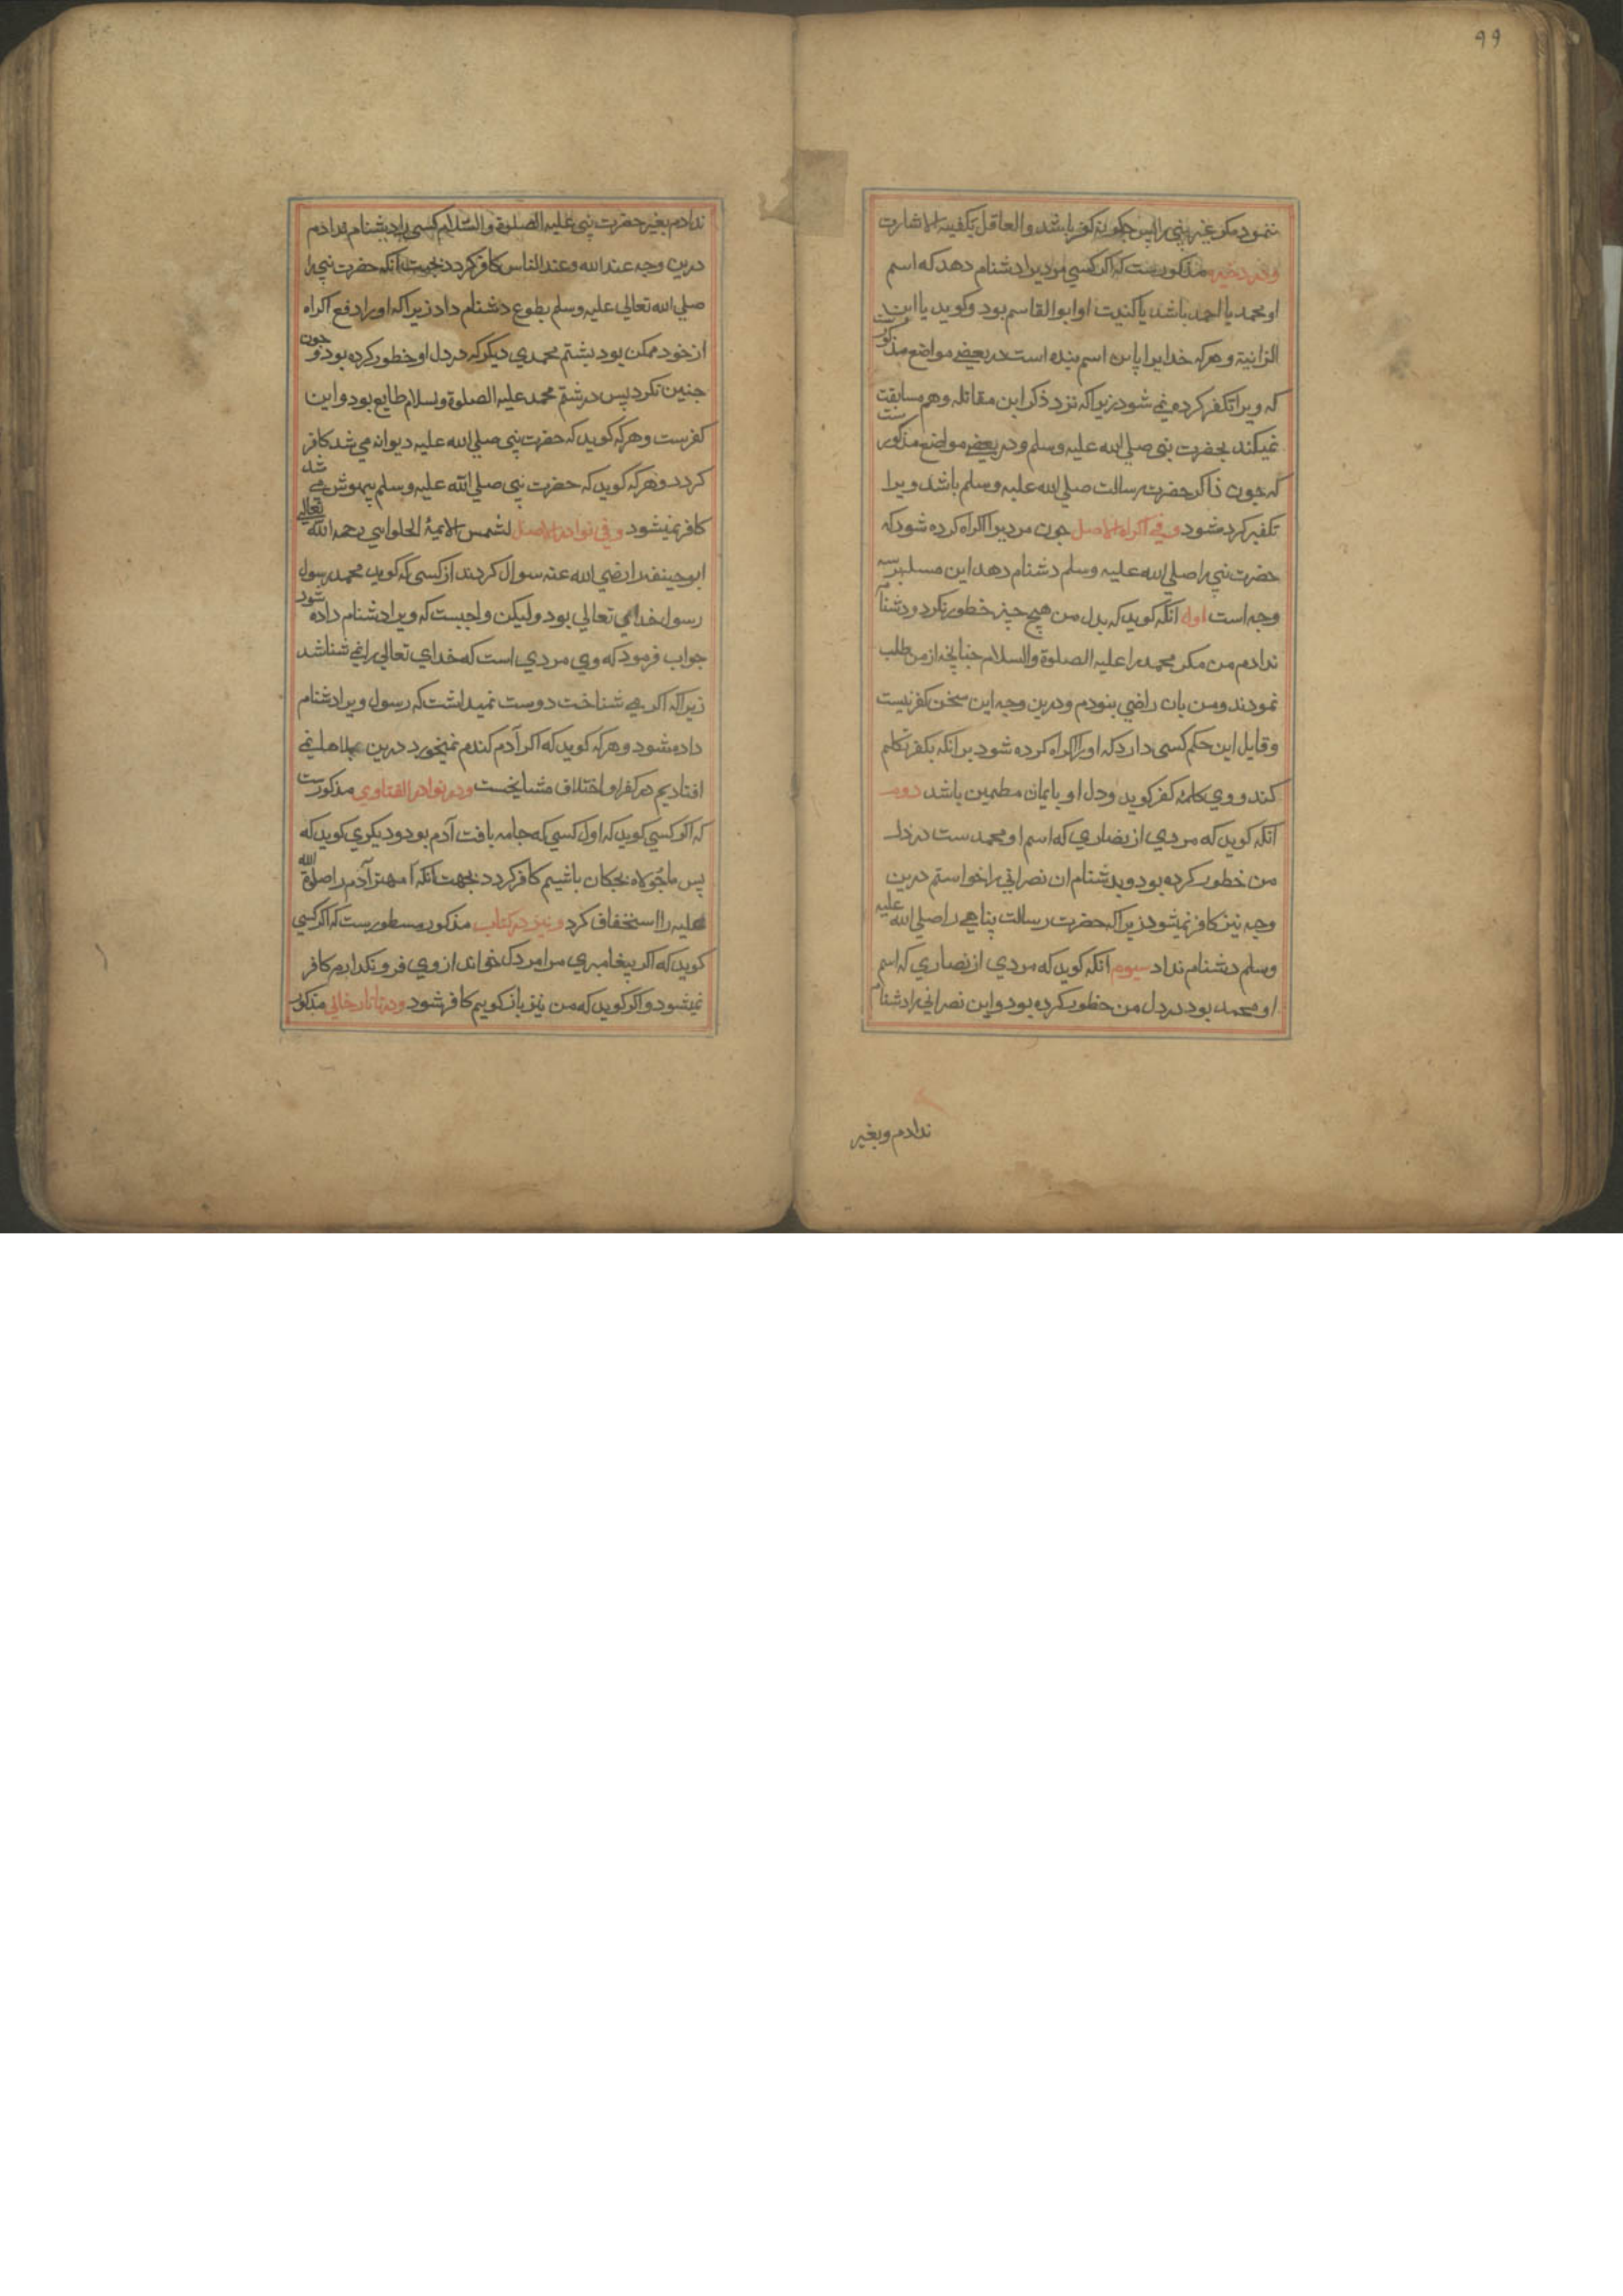 ۹۹
ننمود مکر غیر نبی را پس چکونه کفر باشد و العاقل یکفیه الاشارت
و در ذخیره مذکورست که اکر کسی مردیرا دشنام دهد که اسم
او محمد یا احمد باشد یا کنیت او ابو القاسم بود و کوید یا ابن
الزانیة و هر که خدایرا باین اسم بنده است در بعضے مواضع مذکورست
که ویرا تکفر کرده نمی شود زیرا که نزد ذکر این مقاتله وهم مسابقت
نمیکند بحضرت نبی صلی الله علیه وسلم و در بعضے مواضع مذکورست
که چون ذاکر حضرت رسالت صلی الله علیه وسلم باشد ویرا
تکفیر کرد شود و فی اکراه الاصل چون مردیرا اکراه کرده شود که
حضرت نبی را صلی الله علیه وسلم دشنام دهد این مسله بر سه
وجه است اول انکه کوید که بدل من هیچ چیز خطور نکرد و دشنام
ندادم من مکر محمد را علیه الصلوة والسلام چنانچه از من طلب
نمودند و من بان راضی بنودم و درین وجه این سخن کفر نیست
و قایل این حکم کسی دارد که او را اکراه کرده شود بر انکه بکفر تکلم
کند و وی کلمه کفر کوید و دل او بایمان مطمین باشد دوم
آنکه کوید که مردی از نصاری که اسم او محمد ست در دل
من خطور کرده بود و بدشنام ان نصرانی را خواستم درین
وجه نیز کافر نمیشود زیرا که حضرت رسالت پناهی را صلی الله علیه
وسلم دشنام نداد سیوم آنکه کوید که مردی از نصاری که اسم
او محمد بود در دل من خطور کرده بود و این نصرانی را دشنام
ندادم و بغیر
ندادم بغیر حضرت نبی علیه الصلوة والسلام کسی را دشنام ندادم
درین وجه عند الله و عند الناس کافر کردد بجهت آنکه حضرت نبی را
صلی الله تعالی علیه وسلم بطوع دشنام داد زیرا که او را دفع اکراه
از خود ممکن بود بشتم محمدی دیکر که در دل او خطور کرده بود و چون
چنین نکرد پس در شتم محمد علیه الصلوة و بسلام طایع بود و این
کفرست و هر که کوید که حضرت نبی صلی الله علیه دیوانه می شد کافر
کردد و هر که کوید که حضرت نبی صلی الله علیه وسلم بیهوش می شد
کافر نمیشود و فی نوادر الاصل لشمس الایمة الحلوایی رحمه الله تعالی
ابو حنیفه را رضی الله عنه سوال کردند از کسی که کوید محمد رسول
رسول خدای تعالی بود ولیکن واجبست که ویرا دشنام داده شود
جواب فرمود که وی مردی است که خدای تعالی را نمی شناشد
زیرا که اکر می شناخت دوست نمیداشت که رسول ویرا دشنام
داده شود و هر که کوید که اکر آدم کندم نمیخورد درین بلاها نمی
افتادیم در کفر او اختلاف مشایخست و در نوادر الفتاوی مذکورست
که اکر کسی کوید که اول کسی که جامه بافت آدم بود و دیکری کوید که
پس ما جولاه بچکان باشیم کافر کردد بجهت انکه مهتر آدم را صلوة الله
علیه را استخفاف کرد و نیز در کتاب مذکور مسطورست که اکر کسی
کوید که اکر پیغامبری مرا مردک خواند از وی فرو نکدارم کافر
نمیشود و اکر کوید که من نیز باز کویم کافر شود و در تاتارخانی مذکور